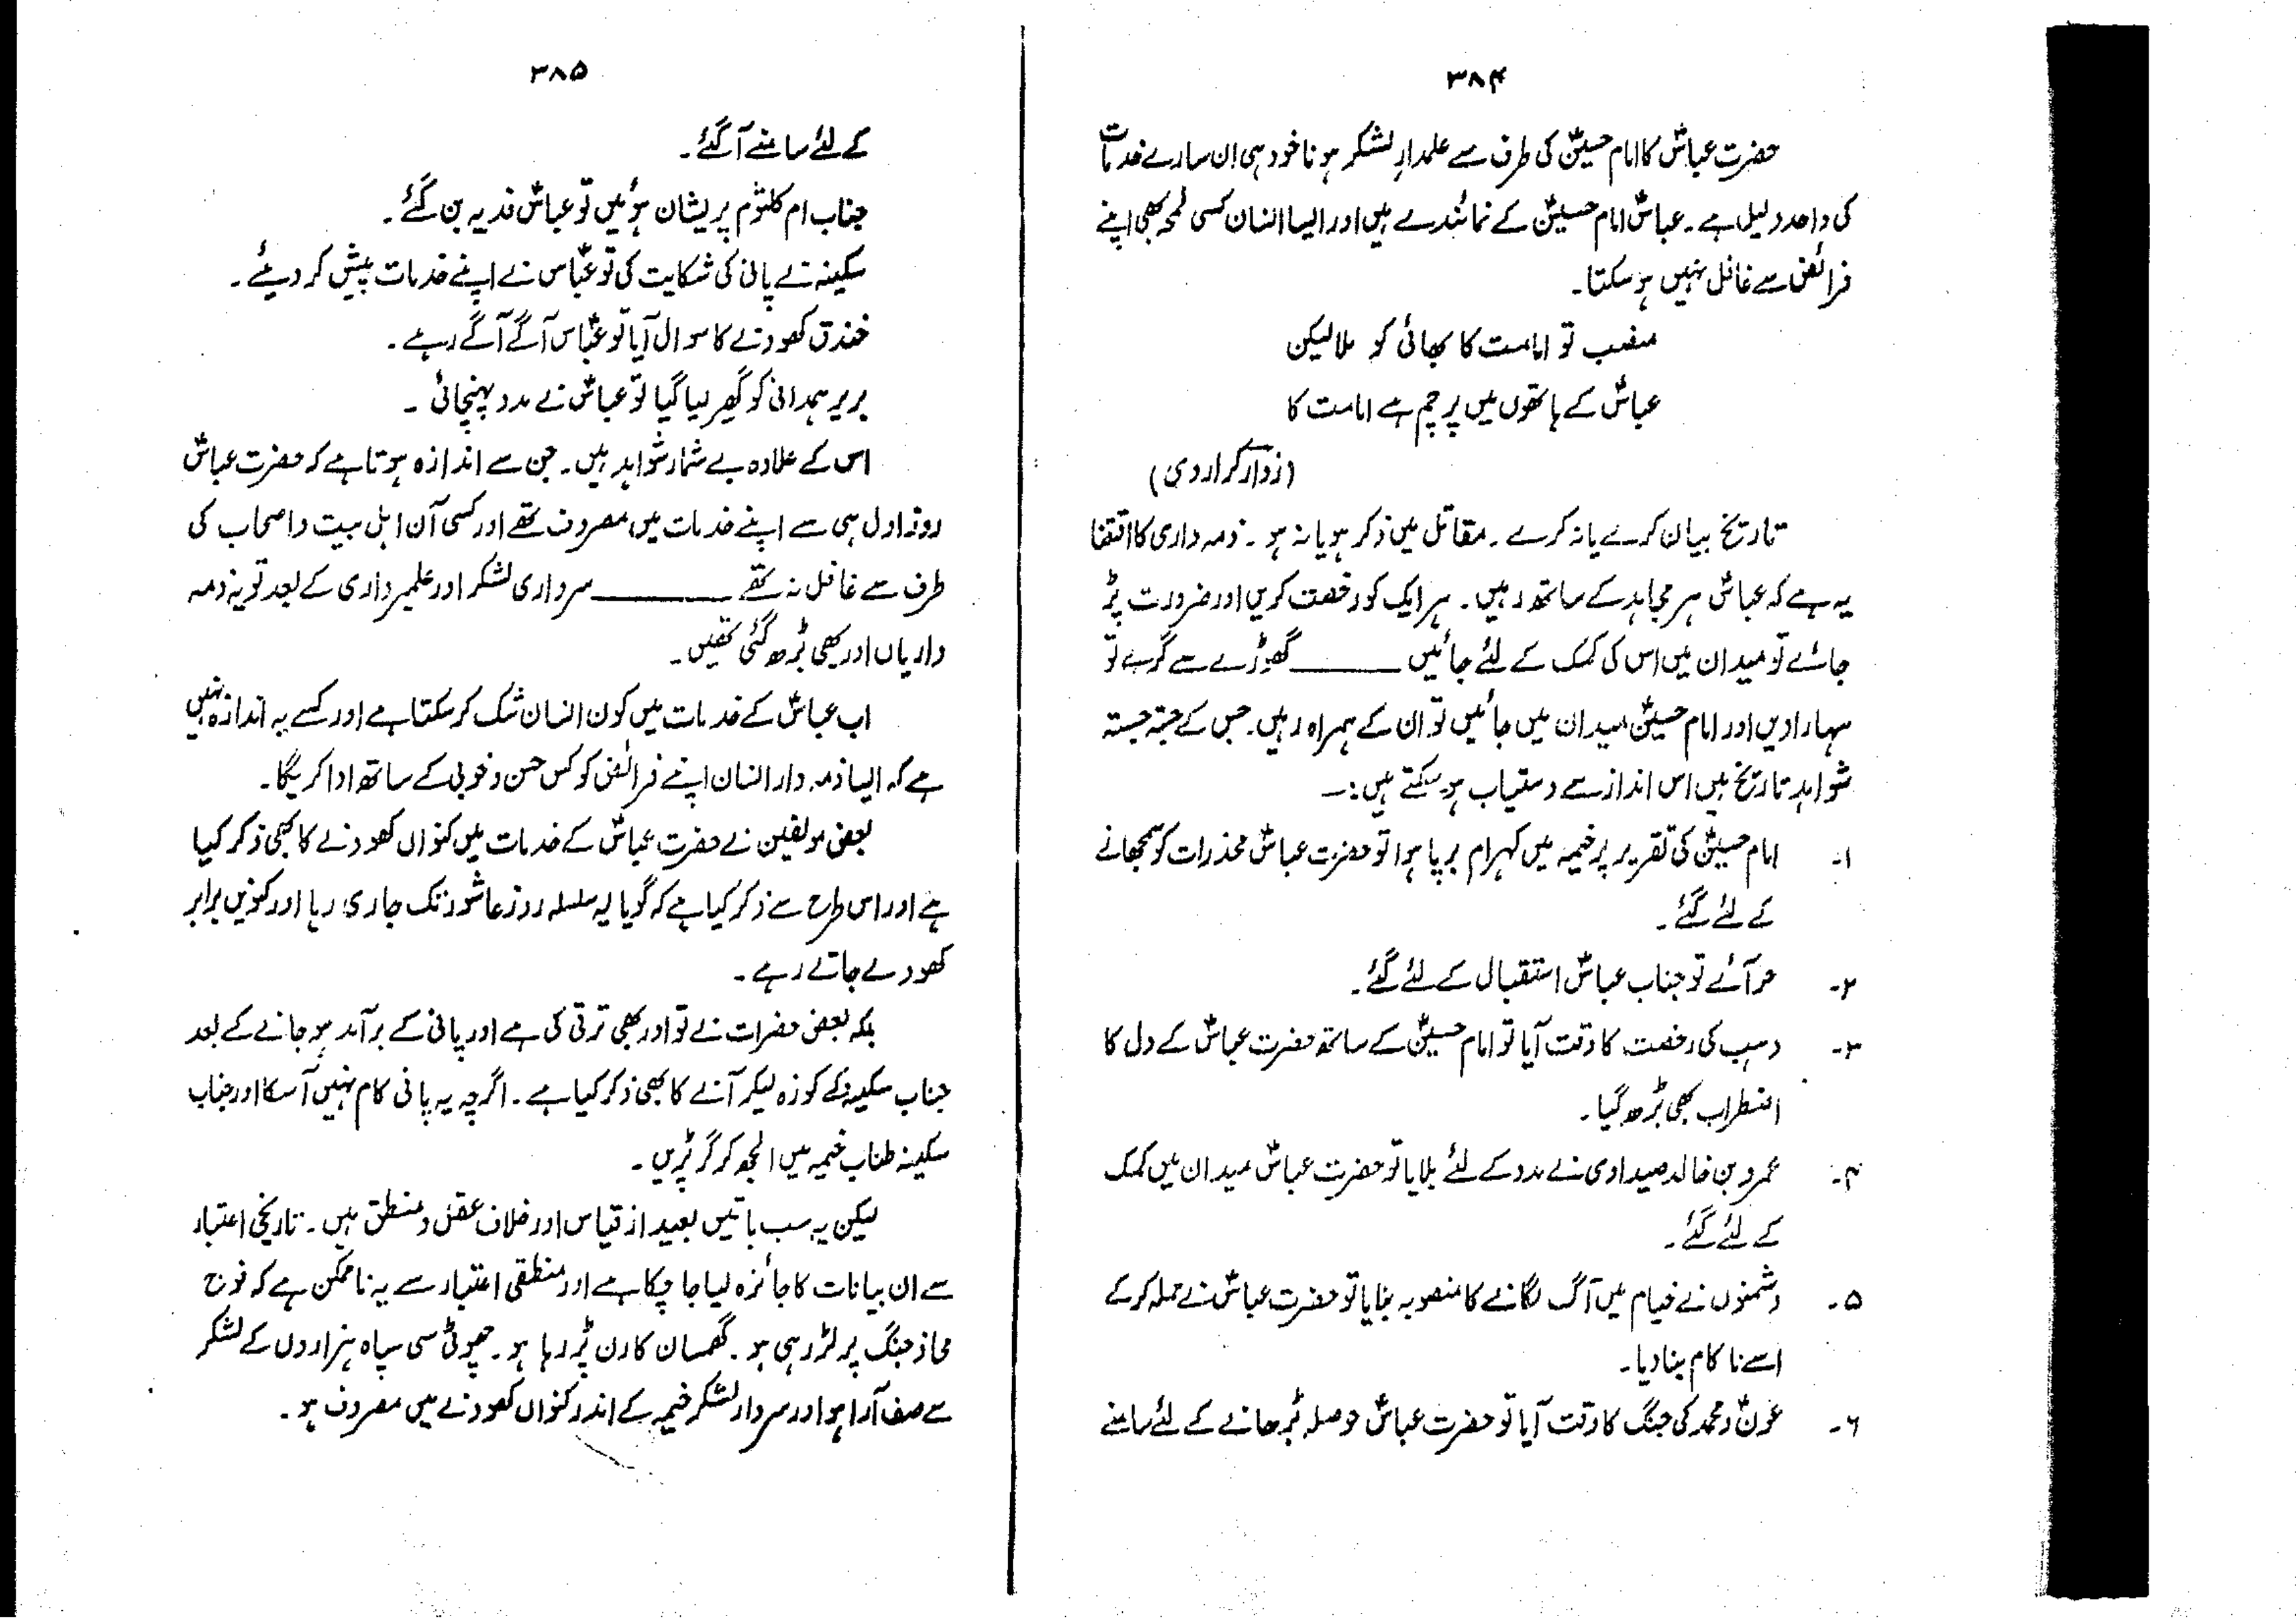 ۳۸۴
حضرت عباسؑ کا امام حسینؑ کی طرف سے علمدارِ لشکر ہونا خود ہی ان سارے خدمات
کی واحد دلیل ہے۔ عباسؑ امام حسینؑ کے نمائندے ہیں اور ایسا انسان کسی لمحہ بھی اپنے
فرائض سے غافل نہیں ہو سکتا۔
منصب تو امامت کا بھائی کو ملا لیکن
عباسؑ کے ہاتھوں میں پرچم ہے امامت کا
(زوّار کراروی)
تاریخ بیان کرے یا نہ کرے۔ مقاتل میں ذکر ہو یا نہ ہو۔ ذمہ داری کا اقتضا
یہ ہے کہ عباسؑ ہر مجاہد کے ساتھ رہیں۔ ہر ایک کو رخصت کریں اور ضرورت پڑ
جائے تو میدان میں اس کی کمک کے لئے جائیں ـــــــ گھوڑے سے گرے تو
سہارا دیں اور امام حسینؑ میدان میں جائیں تو ان کے ہمراہ رہیں۔ جس کے جستہ جستہ
شواہد تاریخ میں اس انداز سے دستیاب ہو سکتے ہیں:۔
۱۔ امام حسینؑ کی تقریر پر خیمہ میں کہرام برپا ہوا تو حضرت عباسؑ مخدرات کو سمجھانے
کے لئے گئے۔
۲۔ حر آئے تو جناب عباسؑ استقبال کے لئے گئے۔
۳۔ وہب کی رخصت کا وقت آیا تو امام حسینؑ کے ساتھ حضرت عباسؑ کے دل کا
اضطراب بھی بڑھ گیا۔
۴۔ عمرو بن خالد صیداوی نے مدد کے لئے بلایا تو حضرت عباسؑ میدان میں کمک
کے لئے گئے۔
۵۔ دشمنوں نے خیام میں آگ لگانے کا منصوبہ بنایا تو حضرت عباسؑ نے حملہ کر کے
اسے ناکام بنا دیا۔
۶۔ عونؑ و محمد کی جنگ کا وقت آیا تو حضرت عباسؑ حوصلہ بڑھانے کے لئے سامنے
۳۸۵
کے لئے سامنے آ گئے۔
جناب ام کلثومؑ پریشان ہوئیں تو عباسؑ فدیہ بن گئے۔
سکینہ نے پانی کی شکایت کی تو عباسؑ نے اپنے خدمات پیش کر دیئے۔
خندق کھودنے کا سوال آیا تو عباسؑ آگے آگے رہے۔
بریر ہمدانی کو گھیر لیا گیا تو عباسؑ نے مدد پہنچائی۔
اس کے علاوہ بے شمار شواہد ہیں۔ جن سے اندازہ ہوتا ہے کہ حضرت عباسؑ
روز اول ہی سے اپنے خدمات میں مصروف تھے اور کسی آن اہل بیت و اصحاب کی
طرف سے غافل نہ تھے ـــــــ سرداری لشکر اور علمبرداری کے بعد تو یہ ذمہ
داریاں اور بھی بڑھ گئی تھیں۔
اب عباسؑ کے خدمات میں کون انسان شک کر سکتا ہے اور کسے یہ اندازہ نہیں
ہے کہ ایسا ذمہ دار انسان اپنے فرائض کو کس حسن و خوبی کے ساتھ ادا کریگا۔
بعض مولفین نے حضرت عباسؑ کے خدمات میں کنواں کھودنے کا بھی ذکر کیا
ہے اور اس طرح سے ذکر کیا ہے کہ گویا یہ سلسلہ روز عاشور تک جاری رہا اور کنویں برابر
کھودے جاتے رہے۔
بلکہ بعض حضرات نے تو اور بھی ترقی کی ہے اور پانی کے برآمد ہو جانے کے بعد
جناب سکینہ کے کوزہ لیکر آنے کا بھی ذکر کیا ہے۔ اگرچہ یہ پانی کام نہیں آ سکا اور جناب
سکینہ طناب خیمہ میں الجھ کر گر پڑیں۔
لیکن یہ سب باتیں بعید از قیاس اور خلاف عقل و منطق ہیں۔ تاریخی اعتبار
سے ان بیانات کا جائزہ لیا جا چکا ہے اور منطقی اعتبار سے یہ ناممکن ہے کہ فوج
محاذ جنگ پر لڑ رہی ہو۔ گھمسان کا رن پڑ رہا ہو۔ چھوٹی سی سپاہ ہزاروں کے لشکر
سے صف آرا ہو اور سردار لشکر خیمہ کے اندر کنواں کھودنے میں مصروف ہو۔